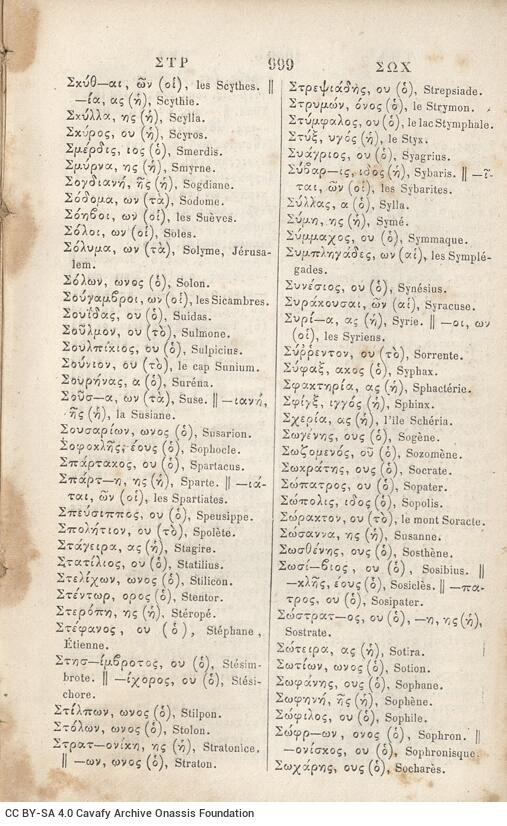 ΣΤΡ 999 ΣΩΧ
Σκύθ—αι, ῶν (οἱ), les Scythes. ||
—ία, ας (ἡ), Scythie.
Σκύλλα, ης (ἡ), Scylla.
Σκῦρος, ου (ἡ), Scyros.
Σμέρδις, ιος (ὁ), Smerdis.
Σμύρνα, ης (ἡ), Smyrne.
Σογδιανή, ῆς (ἡ), Sogdiane.
Σόδομα, ων (τὰ), Sodome.
Σόηβοι, ων (οἱ), les Suèves.
Σόλοι, ων (οἱ), Soles.
Σόλυμα, ων (τὰ), Solyme, Jérusa-
lem.
Σόλων, ωνος (ὁ), Solon.
Σούγαμβροι, ων (οἱ), les Sicambres.
Σουΐδας, ου (ὁ), Suidas.
Σοῦλμον, ου (τὸ), Sulmone.
Σουλπίκιος, ου (ὁ), Sulpicius.
Σούνιον, ου (τὸ), le cap Sunium.
Σουρήνας, α (ὁ), Suréna.
Σοῦσ—α, ων (τὰ), Suse. || —ιανή,
ῆς (ἡ), la Susiane.
Σουσαρίων, ωνος (ὁ), Susarion.
Σοφοκλῆς, έους (ὁ), Sophocle.
Σπάρτακος, ου (ὁ), Spartacus.
Σπάρτ—η, ης (ἡ), Sparte. || —ιά-
ται, ῶν (οἱ), les Spartiates.
Σπεύσιππος, ου (ὁ), Speusippe.
Σπολήτιον, ου (τὸ), Spolète.
Στάγειρα, ας (ἡ), Stagire.
Στατίλιος, ου (ὁ), Statilius.
Στελίχων, ωνος (ὁ), Stilicon.
Στέντωρ, ορος (ὁ), Stentor.
Στερόπη, ης (ἡ), Stéropé.
Στέφανος, ου (ὁ), Stéphane,
Étienne.
Στησ—ίμβροτος, ου (ὁ), Stésim-
brote. || —ίχορος, ου (ὁ), Stési-
chore.
Στίλπων, ωνος (ὁ), Stilpon.
Στόλων, ωνος (ὁ), Stolon.
Στρατ—ονίκη, ης (ἡ), Stratonice.
|| —ων, ωνος (ὁ), Straton.
Στρεψιάδης, ου (ὁ), Strepsiade.
Στρυμών, όνος (ὁ), le Strymon.
Στύμφαλος, ου (ὁ), le lac Stymphale.
Στύξ, υγός (ἡ), le Styx.
Συάγριος, ου (ὁ), Syagrius.
Σύβαρ—ις, ιδος (ἡ), Sybaris. || —ῖ-
ται, ῶν (οἱ), les Sybarites.
Σύλλας, α (ὁ), Sylla.
Σύμη, ης (ἡ), Symé.
Σύμμαχος, ου (ὁ), Symmaque.
Συμπληγάδες, ων (αἱ), les Symplé-
gades.
Συνέσιος, ου (ὁ), Synésius.
Συράκουσαι, ῶν (αἱ), Syracuse.
Συρί—α, ας (ἡ), Syrie. || —οι, ων
(οἱ), les Syriens.
Σύῤῥεντον, ου (τὸ), Sorrente.
Σύφαξ, ακος (ὁ), Syphax.
Σφακτηρία, ας (ἡ), Sphactérie.
Σφίγξ, ιγγός (ἡ), Sphinx.
Σχερία, ας (ἡ), l'île Schéria.
Σωγένης, ους (ὁ), Sogène.
Σωζομενός, οῦ (ὁ), Sozomène.
Σωκράτης, ους (ὁ), Socrate.
Σώπατρος, ου (ὁ), Sopater.
Σώπολις, ιδος (ὁ), Sopolis.
Σώρακτον, ου (τὸ), le mont Soracte.
Σώσαννα, ης (ἡ), Susanne.
Σωσθένης, ους (ὁ), Sosthène.
Σωσί—βιος, ου (ὁ), Sosibius. ||
—κλῆς, έους (ὁ), Sosiclès. || —πα-
τρος, ου (ὁ), Sosipater.
Σώστρατ—ος, ου (ὁ), —η, ης (ἡ),
Sostrate.
Σώτειρα, ας (ἡ), Sotira.
Σωτίων, ωνος (ὁ), Sotion.
Σωφάνης, ους (ὁ), Sophane.
Σωφηνή, ῆς (ἡ), Sophène.
Σώφιλος, ου (ὁ), Sophile.
Σώφρ—ων, ονος (ὁ), Sophron. ||
—ονίσκος, ου (ὁ), Sophronisque.
Σωχάρης, ους (ὁ), Socharès.
CC BY-SA 4.0 Cavafy Archive Onassis Foundation